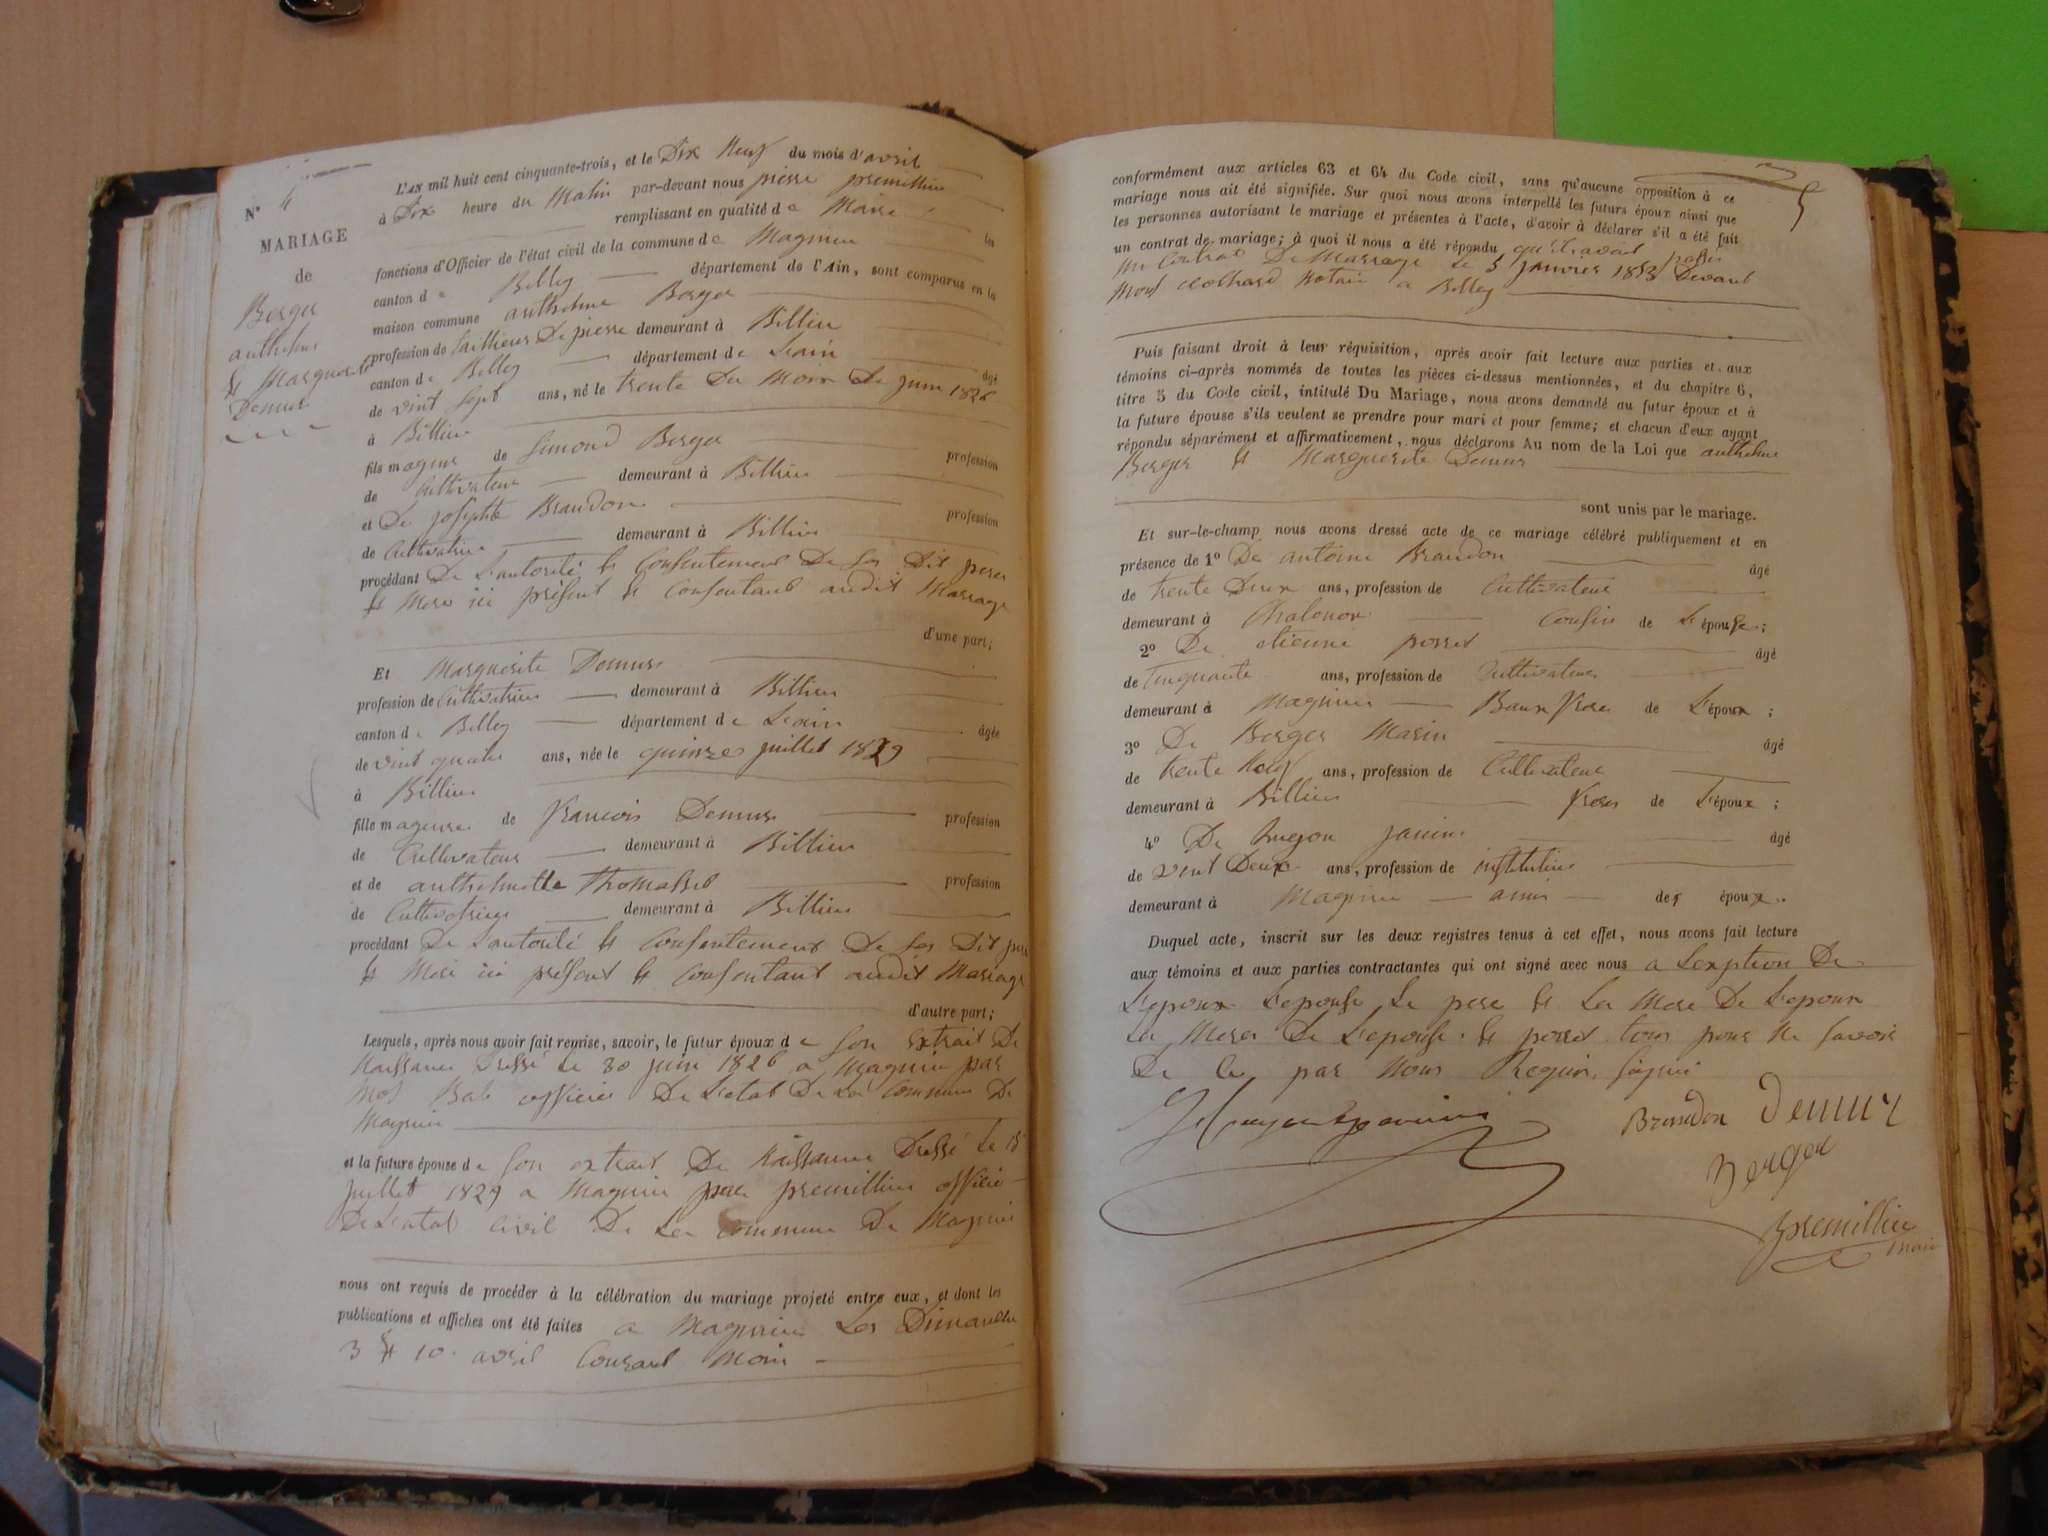 N° 4
MARIAGE
de
Berger
anthelme
et Marguerite
Demur
L'AN mil huit cent cinquante-trois, et le Dix Neuf du mois d'avril
à Dix heure du Matin par-devant nous pierre premillieu
remplissant en qualité de Maire les
fonctions d'Officier de l'état civil de la commune de Magnieu
canton de Belley département de l'Ain, sont comparus en la
maison commune anthelme Berger
profession de tailleur De pierre demeurant à Billieu
canton de Belley département de L'ain âgé
de vint sept ans, né le trente Du Mois De juin 1826
à Billieu
fils mageur de Simond Berger profession
de Cultivateur demeurant à Billieu
et De josephte Brandon profession
de Cultivatrice demeurant à Billieu
procédant De L'autorité et Consentement De Ses Dit peres
et Mere ici présent et Consentant audit Mariage
d'une part;
Et Marguerite Demur
profession de Cultivatrice demeurant à Billieu
canton de Belley département de L'ain âgée
de vint quatre ans, née le quinze juillet 1829
à Billieu
fille mageure de francois Demur profession
de Cultivateur demeurant à Billieu
et de anthelmette Thomasset profession
de Cultivatrice demeurant à Billieu
procédant De L'autorité et Consentement De Ses Dit pere
et Mere ici présent et Consentant audit Mariage
d'autre part;
Lesquels, après nous avoir fait remise, savoir, le futur époux de Son Extrait De
Naissance Dressé Le 30 juin 1826 a Magnieu par
officier De L'etat De La Commune De
Magnieu
et la future épouse de Son extrait De Naissance Dressé Le 15
juillet 1829 a Magnieu par premillieu officier
De L'etat Civil De La Commune De Magnieu
nous ont requis de procéder à la célébration du mariage projeté entre eux, et dont les
publications et affiches ont été faites a Magnieu Les Dimanche
3 et 10 avril Courant Mois
5
conformément aux articles 63 et 64 du Code civil, sans qu'aucune opposition à ce
mariage nous ait été signifiée. Sur quoi nous avons interpellé les futurs époux ainsi que
les personnes autorisant le mariage et présentes à l'acte, d'avoir à déclarer s'il a été fait
un contrat de mariage; à quoi il nous a été répondu qu'il avoit passés
un Contrat De Mariage Le 5 janvier 1853 Devant
Notaire a Belley
Puis faisant droit à leur réquisition, après avoir fait lecture aux parties et aux
témoins ci-après nommés de toutes les pièces ci-dessus mentionnées, et du chapitre 6,
titre 5 du Code civil, intitulé Du Mariage, nous avons demandé au futur époux et à
la future épouse s'ils veulent se prendre pour mari et pour femme; et chacun d'eux ayant
répondu séparément et affirmativement, nous déclarons Au nom de la Loi que anthelme
Berger et Marguerite Demur
sont unis par le mariage.
Et sur-le-champ nous avons dressé acte de ce mariage célébré publiquement et en
présence de 1° De antoine Brandon âgé
de trente Deux ans, profession de Cultivateur
demeurant à Chalonod Cousin de L'épouse;
2° De etienne porret âgé
de Cinquante ans, profession de Cultivateur
demeurant à Magnieu Beaux frere de L'époux;
3° De Berger Marin âgé
de trente Neuf ans, profession de Cultivateur
demeurant à Billieu frere de L'époux;
4° De janin âgé
de vint Deux ans, profession de instituteur
demeurant à Magnieu amis des époux.
Duquel acte, inscrit sur les deux registres tenus à cet effet, nous avons fait lecture
aux témoins et aux parties contractantes qui ont signé avec nous a L'exption De
L'epoux L'epouse Le pere et La Mere De L'epoux
La Mere De L'epouse et porret tous pour Ne savoir
De Ce par Nous Requis signé
Brandon Demur
Berger
premillieu
maire